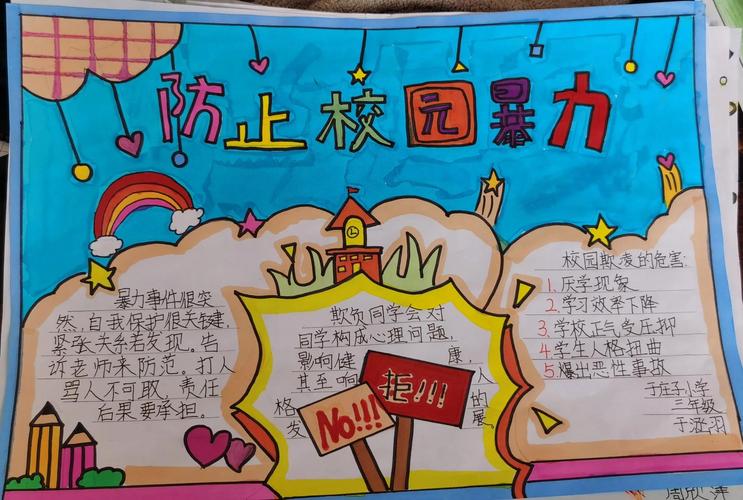 防止校园暴力
暴力事件很突
然,自我保护很关键,
紧张关系若发现。告
诉老师来防范。打人
骂人不可取,责任
后果要承担。
欺负同学会对
同学构成心理问题,
影响健 康,
甚至响 人
格 的
发 展。
No!!!
拒!!!
校园欺凌的危害:
1.厌学现象
2.学习效率下降
3.学校正气受压抑
4.学生人格扭曲
5.爆出恶性事故
于庄子小学
三年级
于涵羽